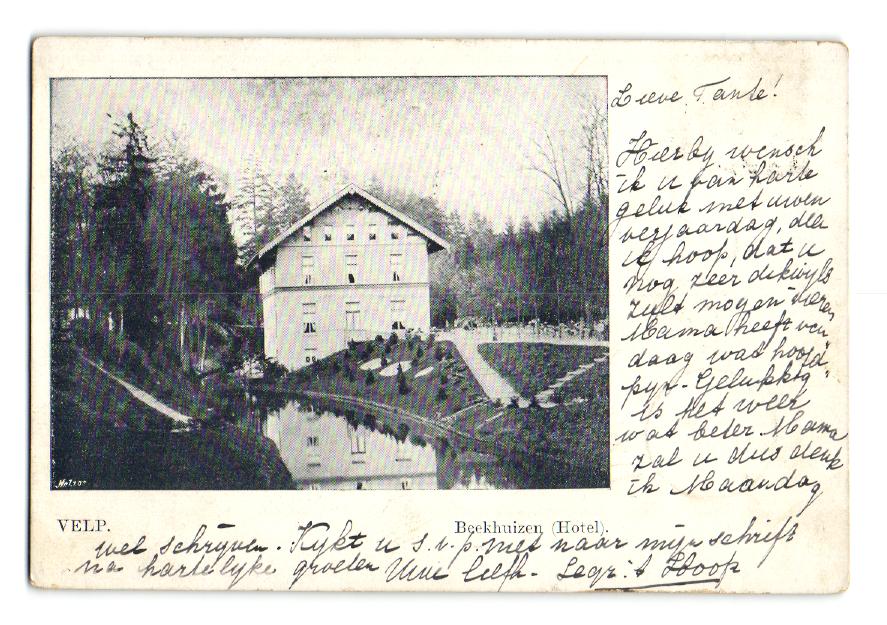 Lieve Tante!
Hierby wensch
ik u van harte
geluk met uwen
verjaardag, die
ik hoop, dat u
nog zeer dikwyls
zult mogen vieren
Mama heeft van
daag wat hoofd
pyn. Gelukkig
is het weer
wat beter Mama
zal u dus denk
ik Maandag
VELP.
Beekhuizen (Hotel).
wel schryven. Kykt u s.v.p. niet naar mijn schrift
na hartelyke groeten Uwe liefh.